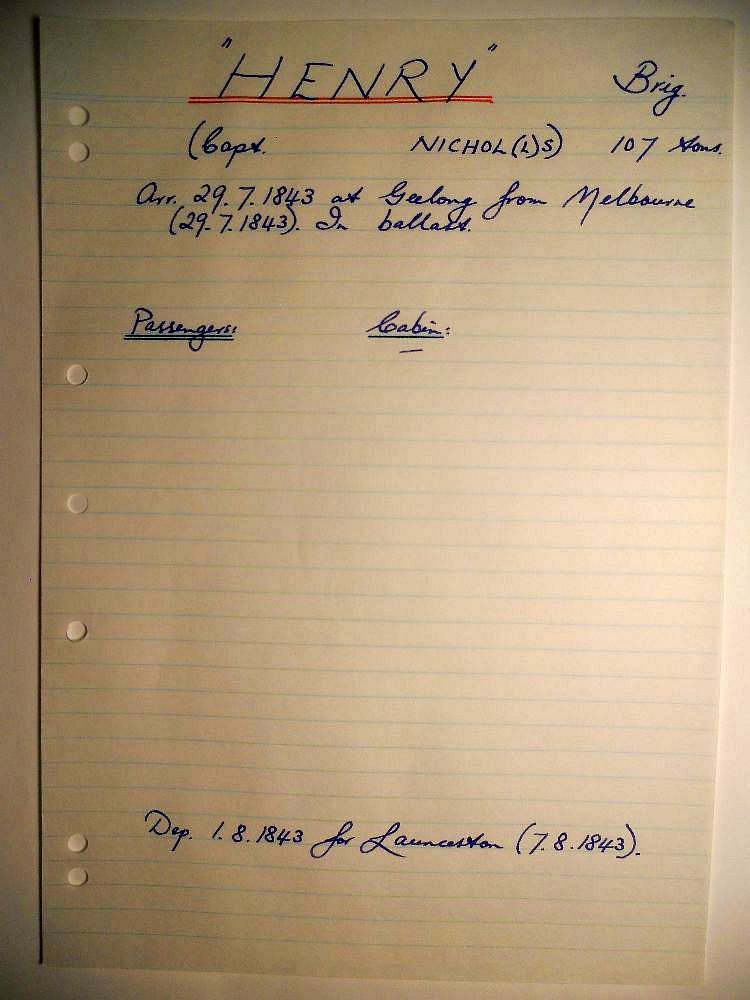 "HENRY" Brig.
(Capt. NICHOL(L)S) 107 tons.
Arr. 29.7.1843 at Geelong from Melbourne
(29.7.1843). In ballast.
Passengers: Cabin:
—
Dep. 1.8.1843 for Launceston (7.8.1843).